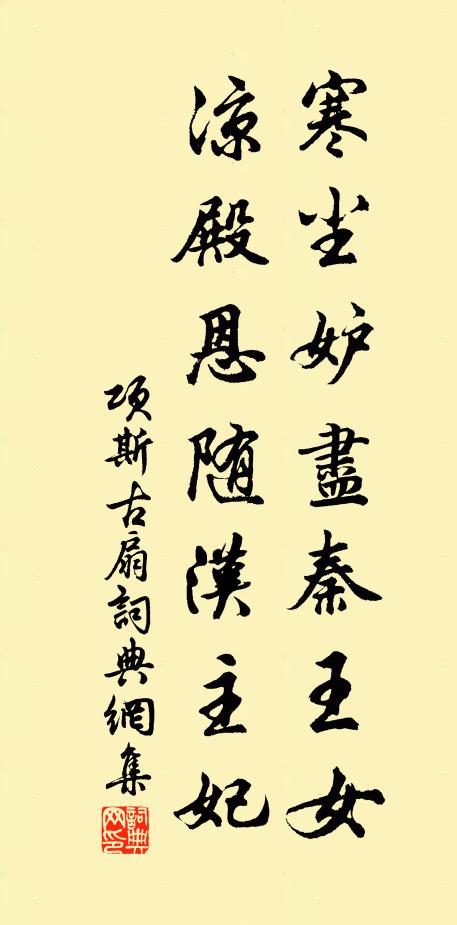 寒尘妒盡秦王女
涼殿恩随漢主妃
項斯古扇詞典網集
詞典網印